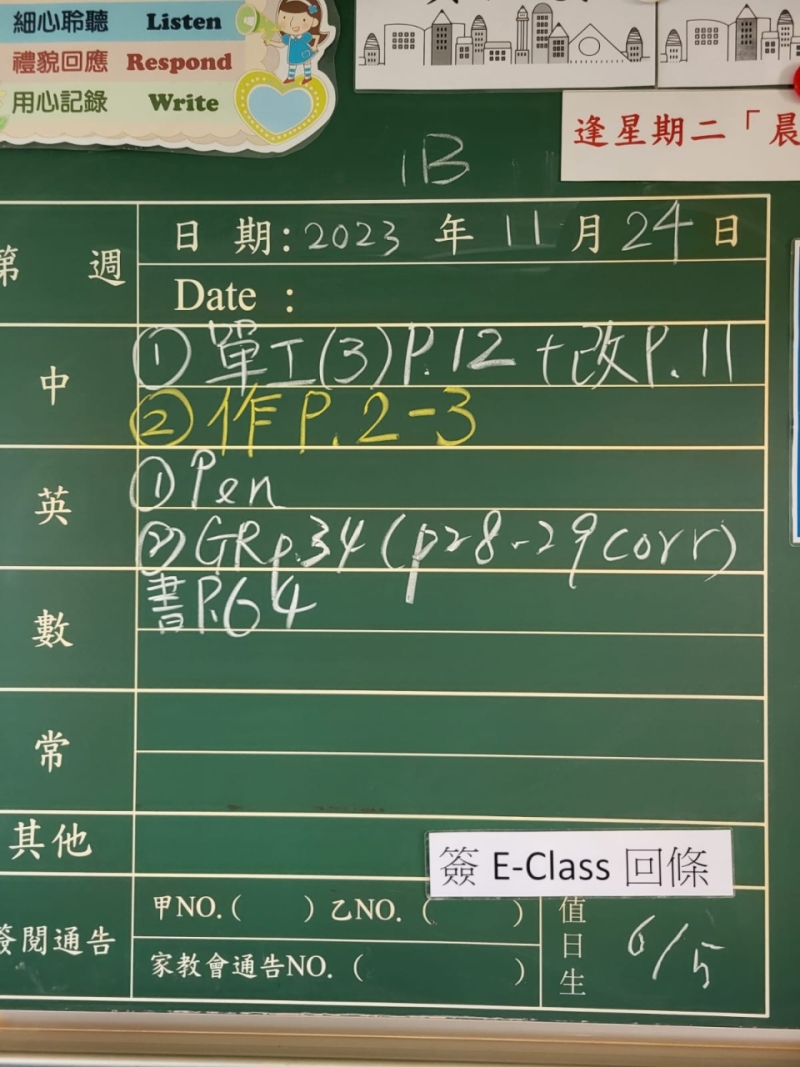 細心聆聽 Listen
禮貌回應 Respond
用心記錄 Write
逢星期二「晨
1B
第 週
日 期: 2023 年 11 月 24 日
Date :
中
① 單工(3)P.12 +改P.11
② 作P.2-3
英
① Pen
② GRp.34(p28-29corr)
數
書P.64
常
其他
簽 E-Class 回條
簽閱通告
甲NO.( ) 乙NO.( )
家教會通告NO.( )
值日生
6/5